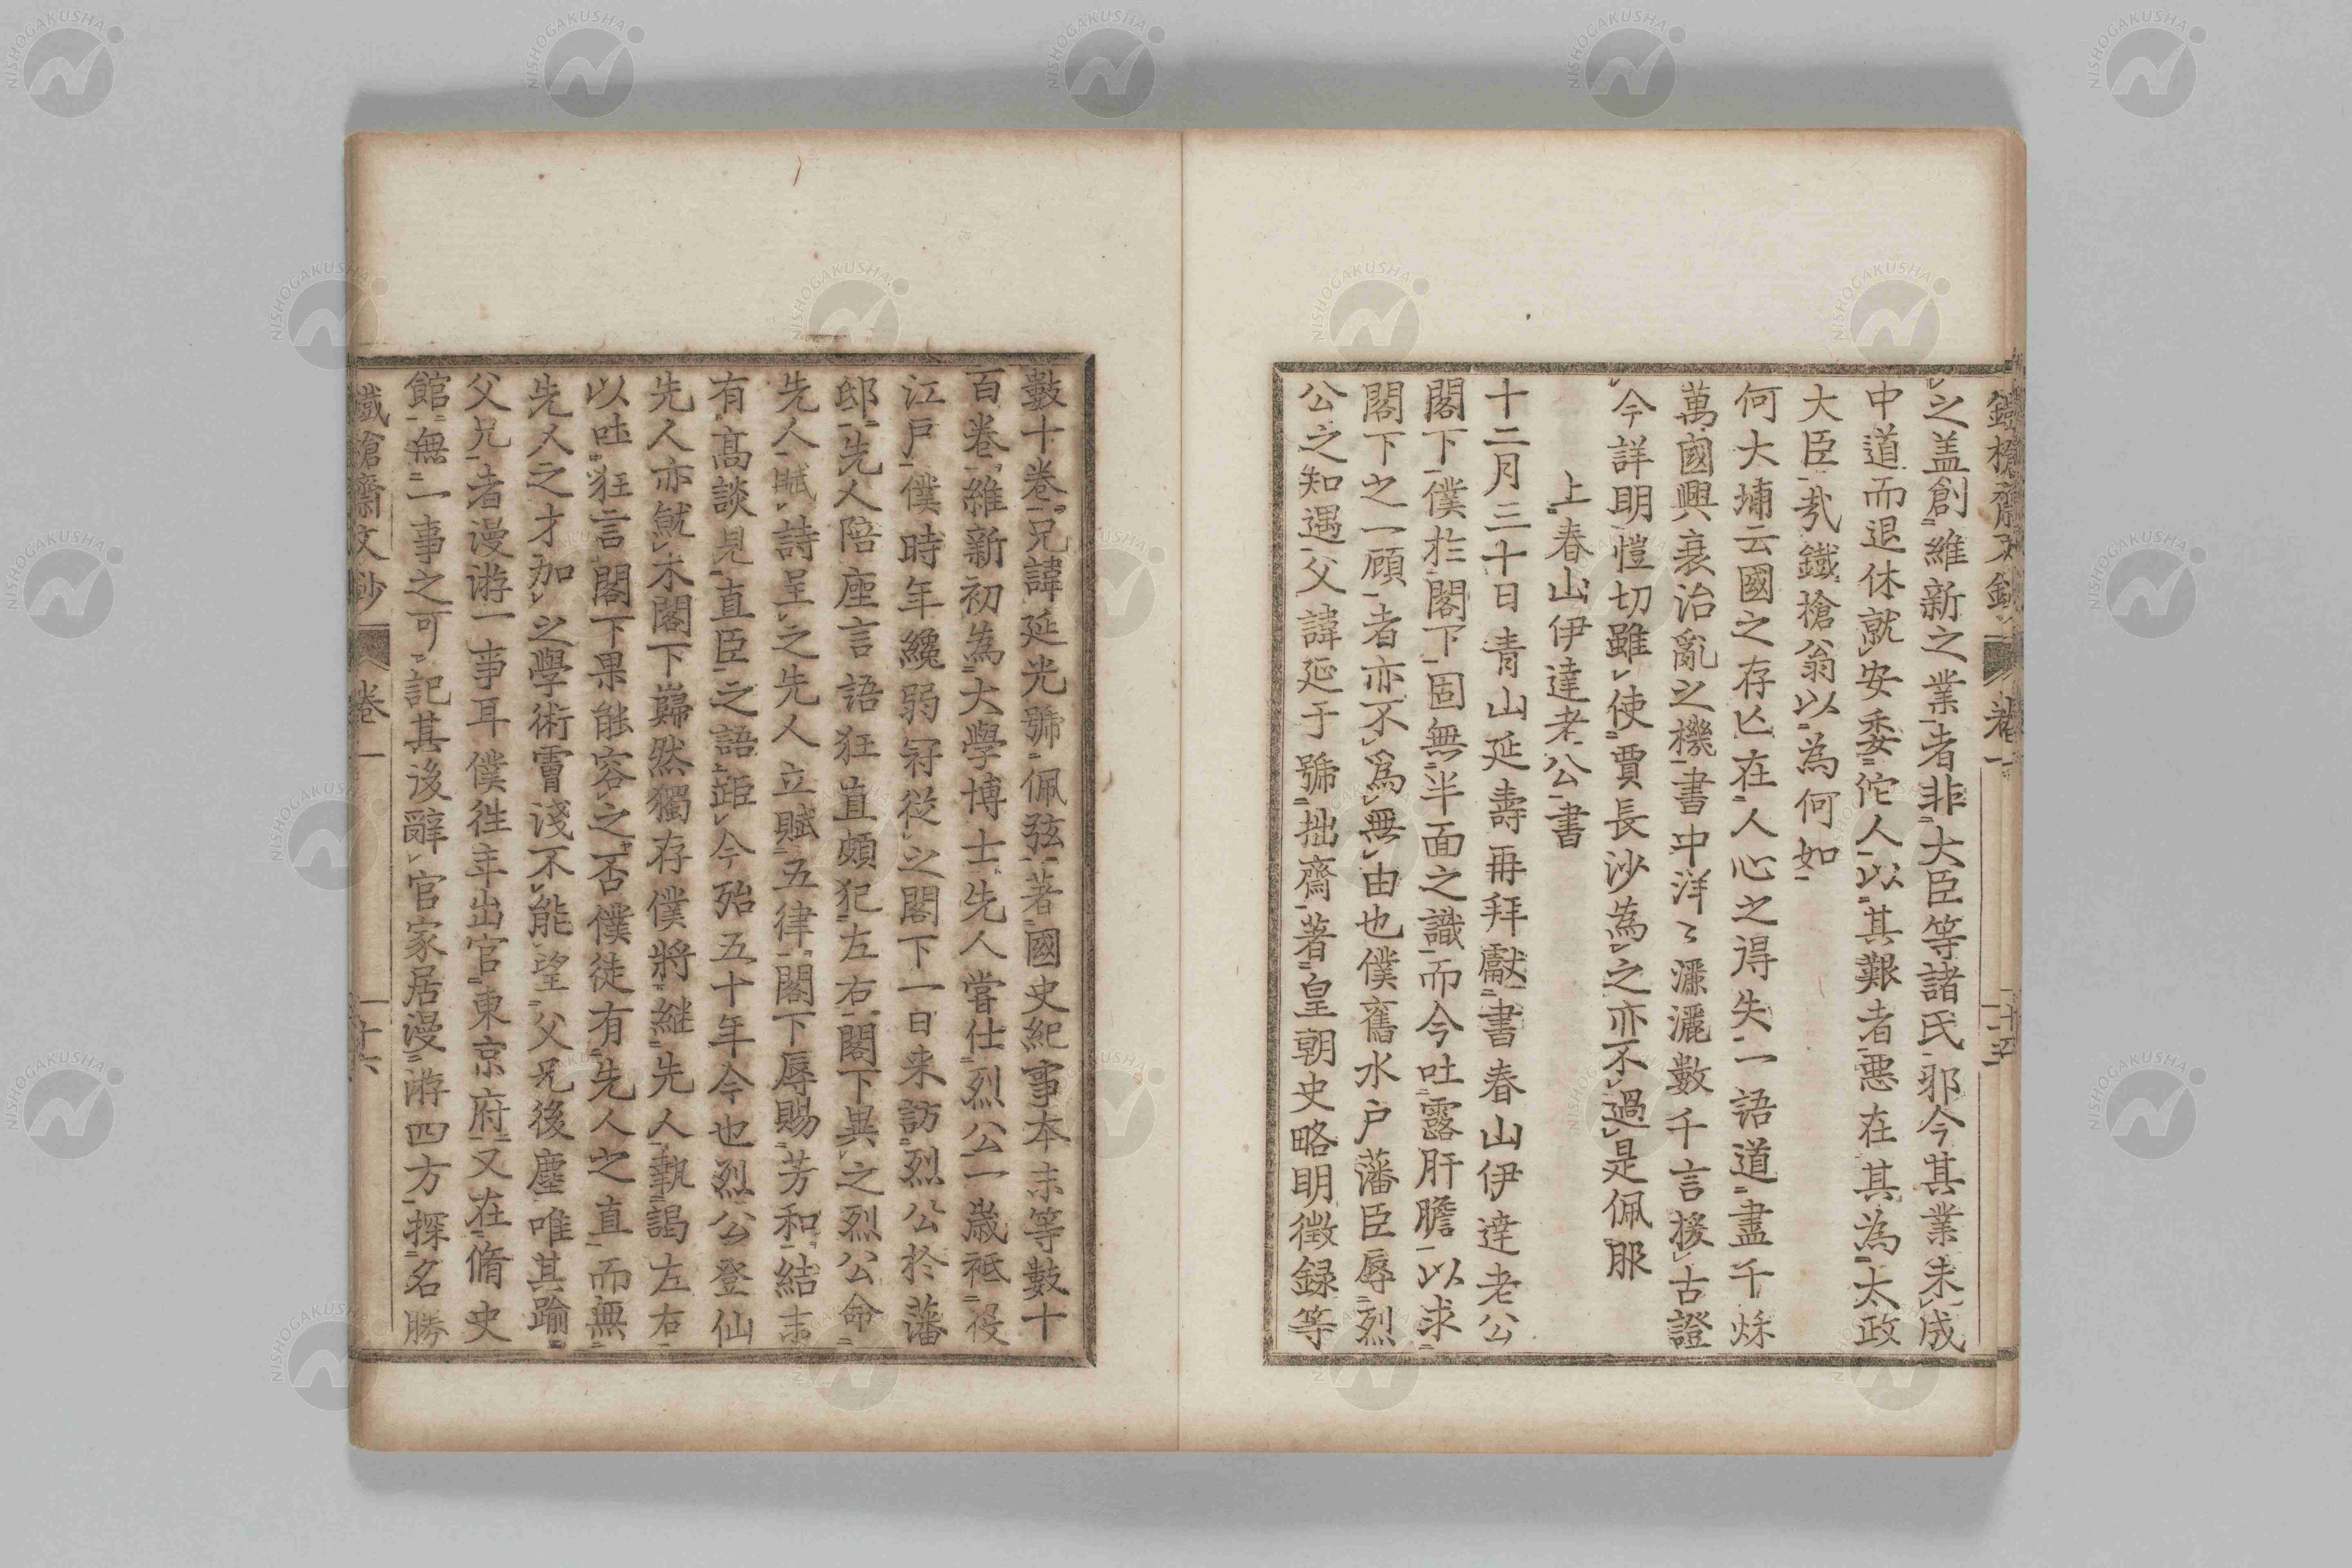 鐵槍齋文鈔 卷一 二十五
之盖創維新之業者非大臣等諸氏耶今其業未成
中道而退休就安委佗人以其艱者惡在其為太政
大臣㢤鐵槍翁以為何如
何大埔云國之存亡在人心之得失一語道盡千秌
萬國興衰治亂之機書中洋〻灑灑數千言援古證
今詳明愷切雖使賈長沙為之亦不過是佩服
上春山伊達老公書
十二月三十日青山延壽再拜獻書春山伊達老公
閣下僕於閣下固無半面之識而今吐露肝膽以求
閣下之一顧者亦不為無由也僕舊水户藩臣辱烈
公之知遇父諱延于號拙齋著皇朝史略明徵録等
數十卷兄諱延光號佩弦著國史紀事本末等數十
百卷維新初為大學博士先人嘗仕烈公一歲祗役
江戶僕時年纔弱冠從之閣下一日来訪烈公於藩
邸先人陪座言語狂直頗犯左右閣下異之烈公命
先人賦詩呈之先人立賦五律閣下辱賜芳和結末
有高談見直臣之語距今殆五十年今也烈公登仙
先人亦就木閣下巋然獨存僕將継先人執謁左右
以吐狂言閣下果能容之否僕徒有先人之直而無
先人之才加之學術膚淺不能望父兄後塵唯其踰
父兄者漫游一事耳僕徃年出官東京府又在脩史
館無一事之可記其後辭官家居漫游四方探名勝
鐵槍齋文鈔 卷一 二十六